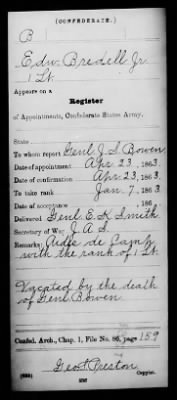 (CONFEDERATE.)
B
Edw. Bredell Jr
1 Lt.
Appears on a
Register
of Appointments, Confederate States Army.
State
To whom report Genl J. S. Bowen
Date of appointment Apr 23, 1863.
Date of confirmation Apr 23, 1863.
To take rank Jan. 7, 1863
Date of acceptance , 186 .
Delivered Genl E. K. Smith
Secretary of War J. A. S.
Remarks: Aide de Camp
with the rank of 1 Lt.
Vacated by the death
of Genl Bowen
Confed. Arch., Chap. 1, File No. 86, page 159
Geo. Preston
Copyist.